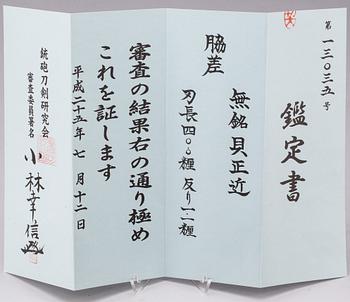 第一三〇三五号
鑑定書
脇差
無銘貝正近
刃長四〇、糎 反り一、一糎
審査の結果右の通り極め
これを証します
平成二十五年七月十二日
銃砲刀剣研究会
審査委員署名
小林幸信